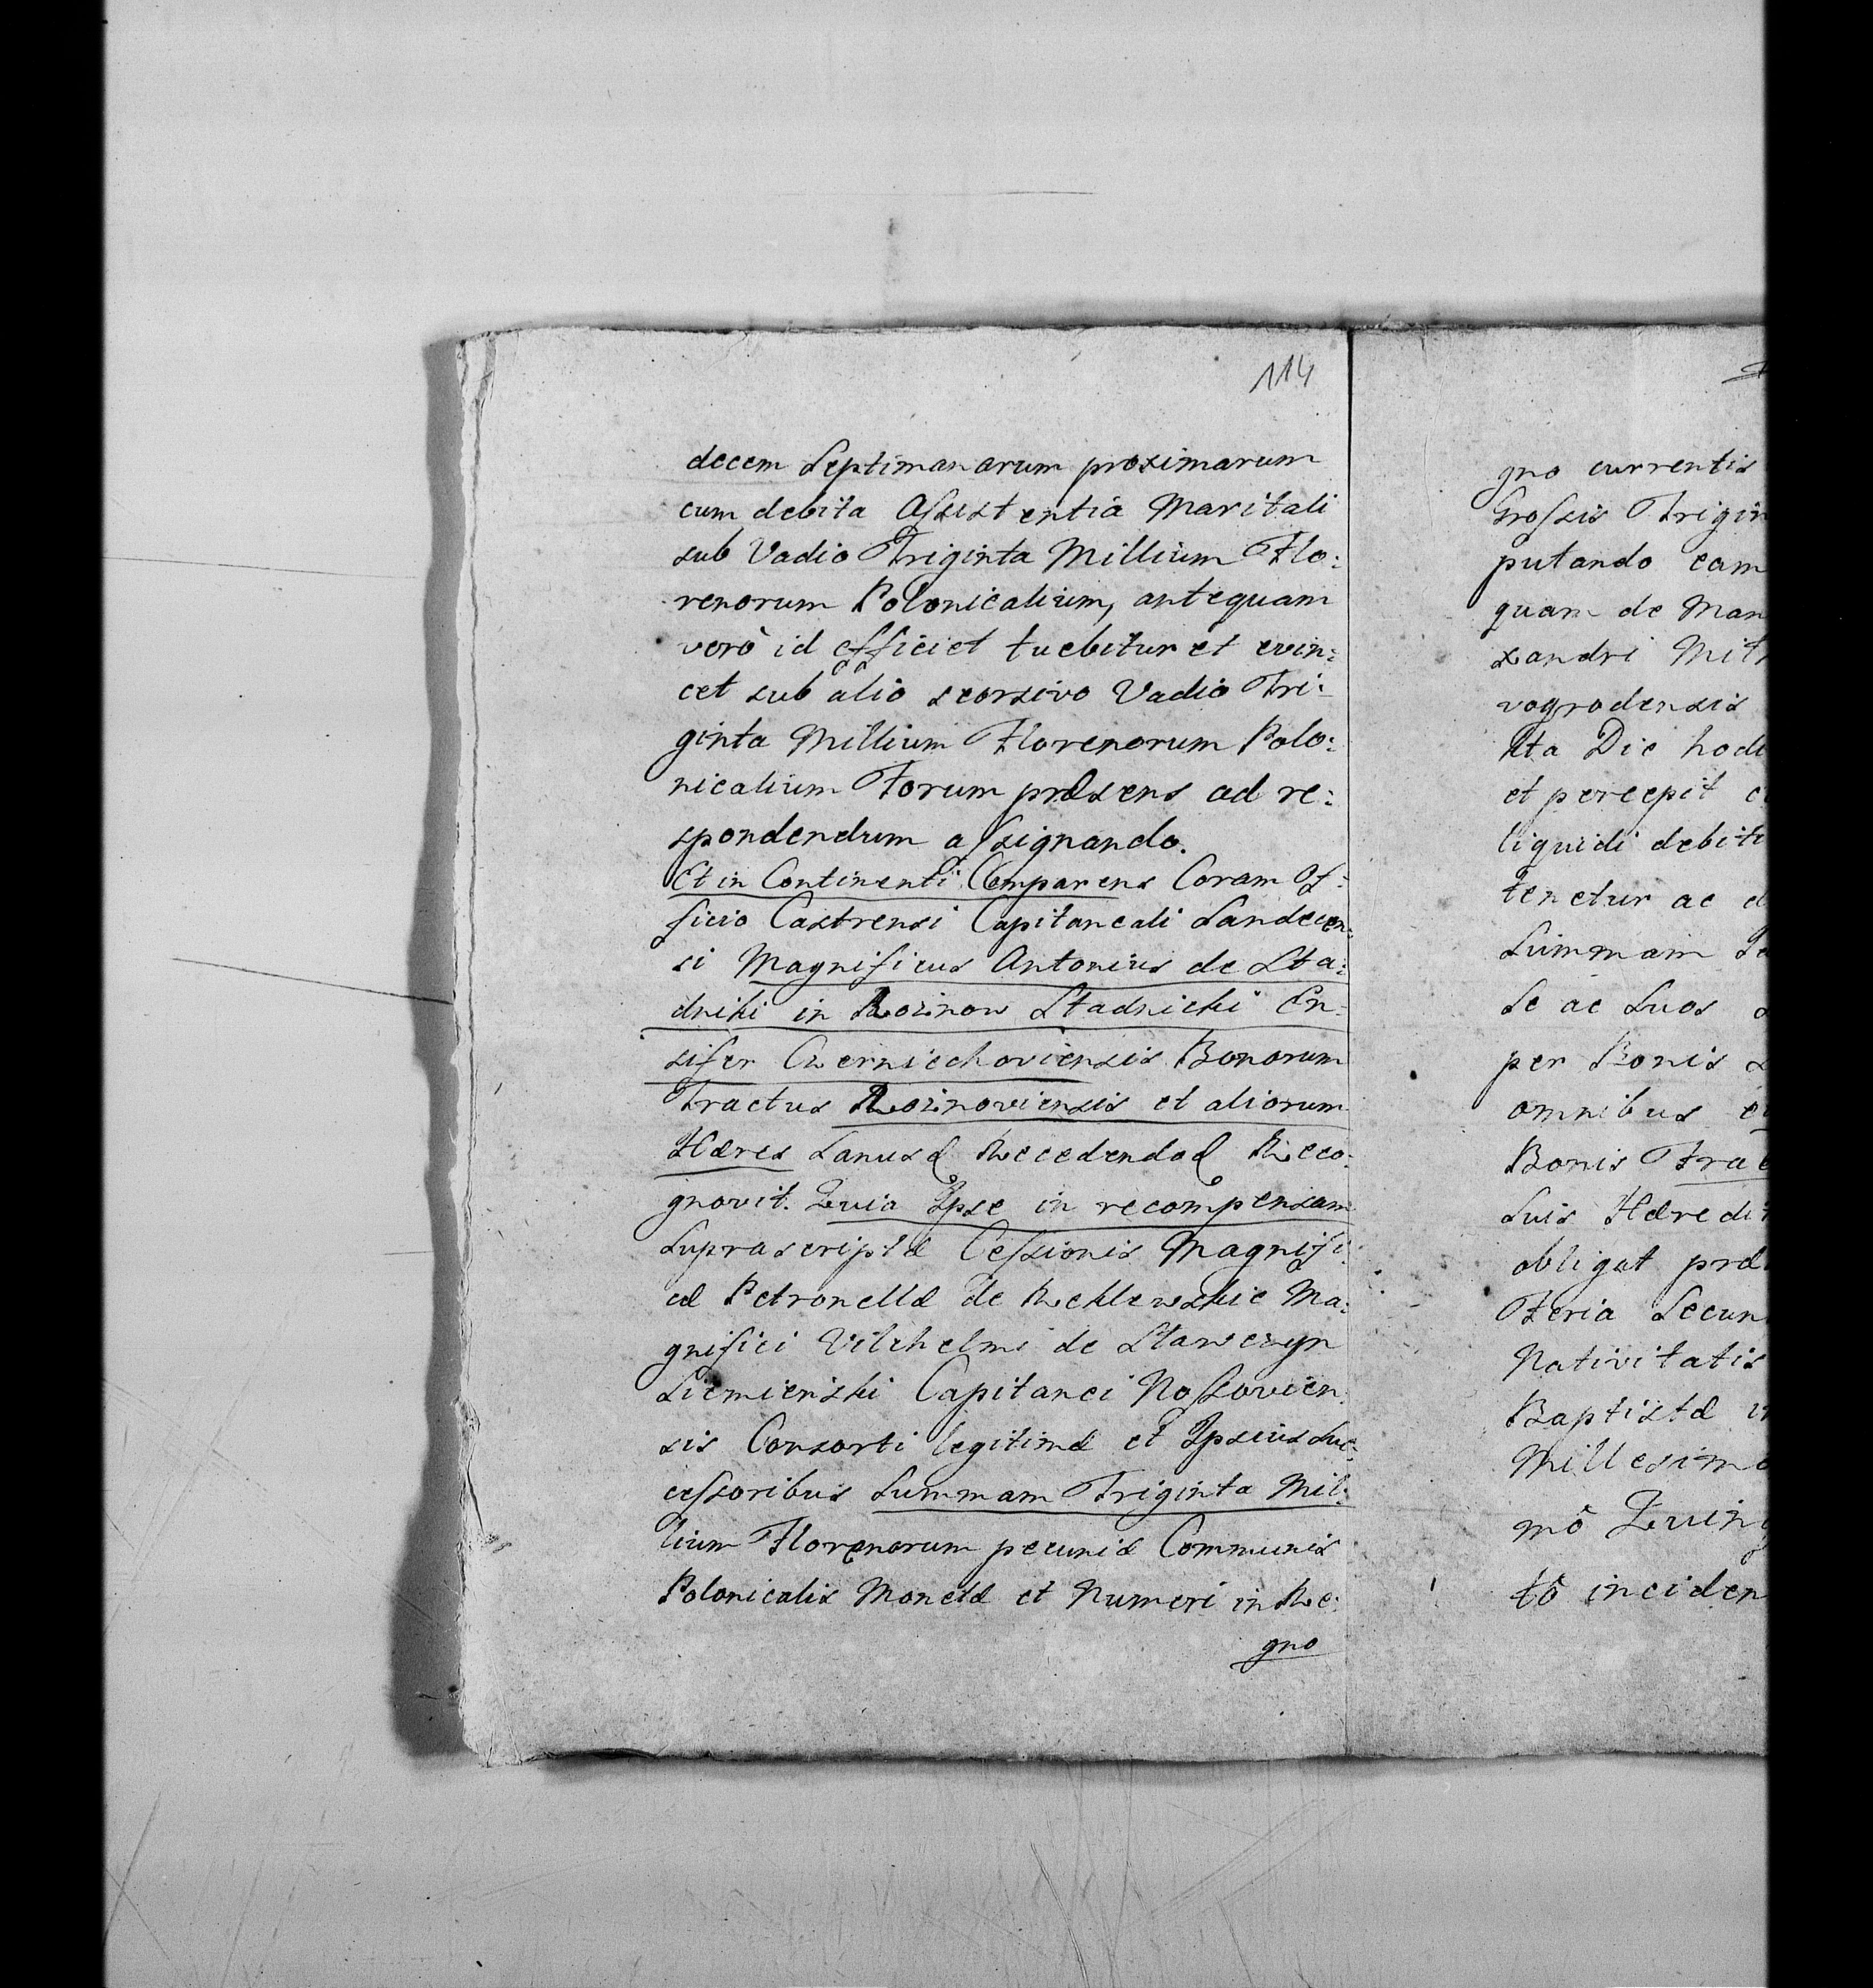 114
decem Septimanarum proximarum
cum debita Assistentia Maritali
sub Vadio Triginta Millium Flo:
renorum Polonicalium, antequam
verò id efficiet tuebitur et evin:
cet sub alio seorsivo Vadio Tri:
ginta Millium Florenorum Polo:
nicalium Forum præsens ad re:
spondendum assignando.
Et in Continenti Comparens Coram Of:
ficio Castrensi Capitaneali Sandecen:
si Magnificus Antonius de Sta:
dniki in Rożnow Stadnicki En:
sifer Czerniechoviensis Bonorum
Tractus Rożnoviensis et aliorum
Hæres Sanus Recedendo Reco:
gnovit. Quia Ipse in recompensam
Suprascriptæ Cessionis Magnifi:
cæ Petronellæ de Rechlewskie Ma:
gnifici Vilhelmi de Stawczyn
Siemieński Capitanei Nossovien:
sis Consorti legitimæ et Ipsius Suc:
cessoribus Summam Triginta Mil:
lium Florenorum pecuniæ Communis
Polonicalis Monetæ et Numeri in Re:
gno
gno currentis
Grossis Trigin
putando eam
quam de Man
xandri Mit
vogrodensis
Ita Die hodi
et percepit
liquidi debiti
tenetur ac
Summam
Se ac Suos
per Bonis
omnibus
Bonis Tra
Suis Hæredit
obligat præ
Feria Secun
Nativitatis
Baptistæ
Millesimo
mô Quing
tô inciden